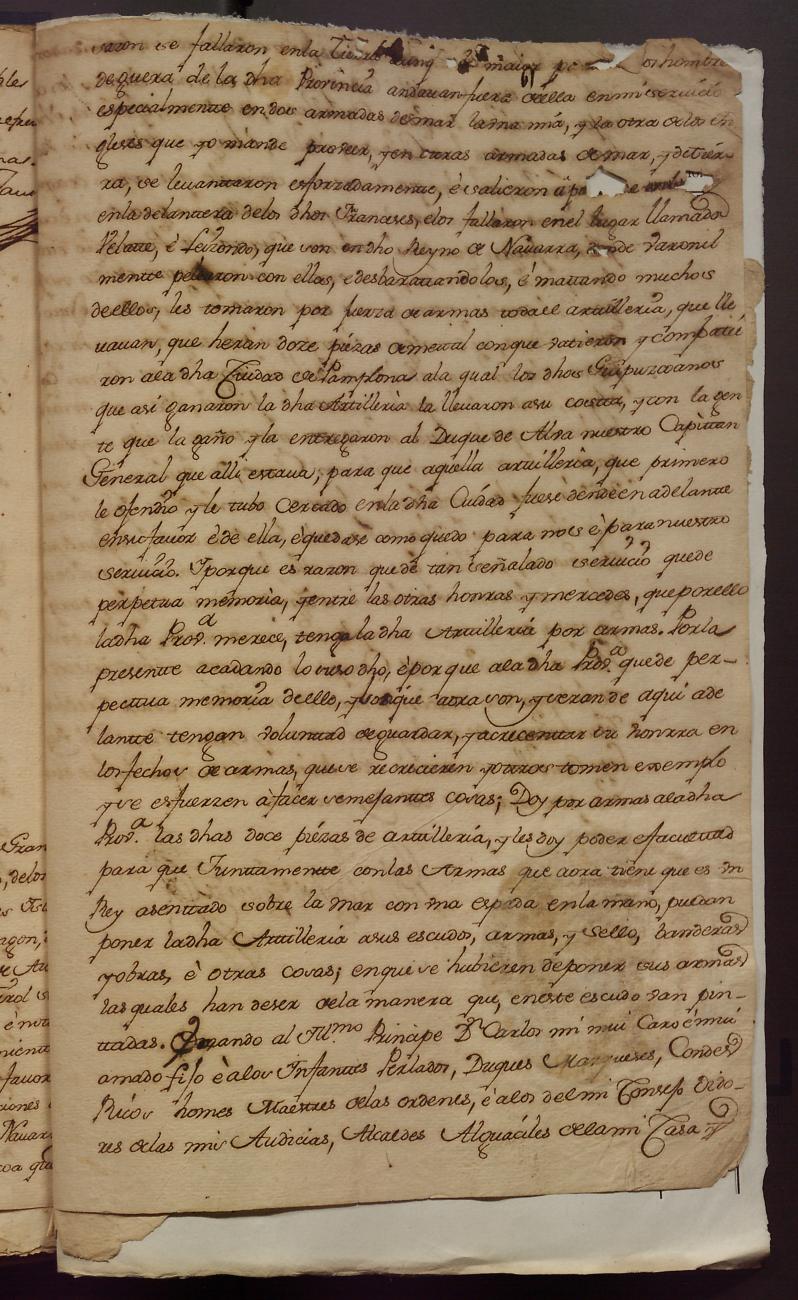 saron se fallaron enla Tierra aunq maior los hombres
de guera de la dha Provincia andauan fuera della en mi seruicio
especialmentte en dos armadas de mar la vna mia, y la otra de los in
gleses que yo mande proveer, y en otras armadas de mar, y de tier-
ra, se leuanttaron esforzadamentte, è salieron
enla delantera delos dhos Franceses, elos fallaron en el lugar llamado
Velatte, è Leizondo, que son en dho Reyno de Nauarra, à ode varonil
mentte pelearon con ellos, e desbarattandolos, è mattando muchos
de ellos, les tomaron por fuerza de armas toda el artilleria, que lle
uauan, que heran doze piezas de metal con que vatieron y combatie
ron ala dha Ciudad de Pamplona ala qual los dhos Guipuzcoanos
que asi ganaron la dha Artilleria la lleuaron a su costta, y con la gen
te que la gaño y la entregaron al Duque de Alva nuestro Capittan
General que alli estaua, para que aquella artilleria, que primero
le ofendio y le tubo cercado enla dha Ciudad fuese dende en adelante
en su fauor è de ella, è quedase como quedo para nos è para nuestro
seruicio. Y porque es razon que de tan señalado seruicio quede
perpetua memoria, y entre las otras honras y mercedes, que por ello
la dha Prov.ª merece, tenga la dha Artilleria por armas. Por la
presentte acadando lo suso dho, è por que ala dha Prov.ª quede per-
pettua memoria de ello, y los que aora son, y seran de aqui ade
lantte tengan voluntad de guardar, y acrecenttar su honrra en
los fechos de armas, que se recrecieren y otros tomen exemplo
y se esfuerzen à facer semejanttes cosas; Doy por armas ala dha
Prov.ª las dhas doce piézas de artilleria, y les doy poder e facultad
para que Junttamentte con las Armas que aora tiene que es vn
Rey asenttado sobre la mar con vna espada en la mano, puedan
poner la dha Artilleria a sus escudos, armas, y sello, banderas
y obras, è otras cosas; en que se hubieren de poner sus armas
las quales han de ser dela manera que, en este escudo van pin-
ttadas. Y mando al Ill.mo Principe D.n Carlos mi mui Caro è mui
amado fijo è a los Infanttes Perlados, Duques Marqueses, Condes
Ricos homes Maestres delas ordenes, è alos del mi Consejo Oido-
res delas mis Audicias, Alcaldes Alguaciles dela mi Casa